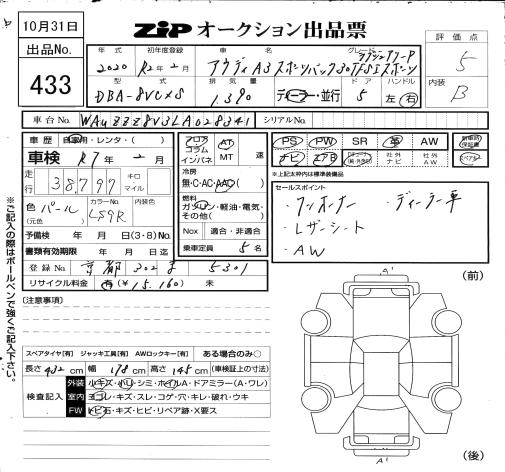 10月31日
ZIP オークション出品票
出品No.
433
年式 初年度登録 車名 グレード ドア ハンドル
2020 R2年2月 アウディA3スポーツバック30TFSIスポーツ
評価点
5
型式 排気量
DBA-8VCXS 1.390 ディーラー・並行 5 左 右
内装
B
車台No. WAUZZZ8V3LA028341 シリアルNo.
車歴 自家用・レンタ・( )
車検 R7年2月
走行 38,797 キロ マイル
色(元色) パール カラーNo. LS9R 内装色
予備検 年 月 日(3・8)No.
書類有効期限 年 月 日迄
登録No. 京都 302 ま 5301
リサイクル料金 有(¥15,160) 未
フロア コラム インパネ AT MT 速
冷房
無・C・AC・AAC
燃料
ガソリン・軽油・電気・その他( )
Nox 適合・非適合
乗車定員 5名
PS PW SR 革 AW 新車時保証書
ナビ エアB 社外ナビ 社外AW
※上記太枠内は標準装備品
セールスポイント
・ワンオーナー ・ディーラー車
・レザーシート
・AW
※ご記入の際はボールペンで強くご記入下さい。
(注意事項)
スペアタイヤ[有] ジャッキ工具[有] AWロックキー[有] ある場合のみ○
長さ432cm 幅178cm 高さ145cm (車検証上の寸法)
検査記入
外装 小キズ・小ヘコ・シミ・ホイルA・ドアミラー(A・ワレ)
室内 ヨゴレ・キズ・スレ・コゲ・穴・キレ・破れ・ウキ
FW トビ石・キズ・ヒビ・リペア跡・X要ス
(前)
A1
A1
(後)